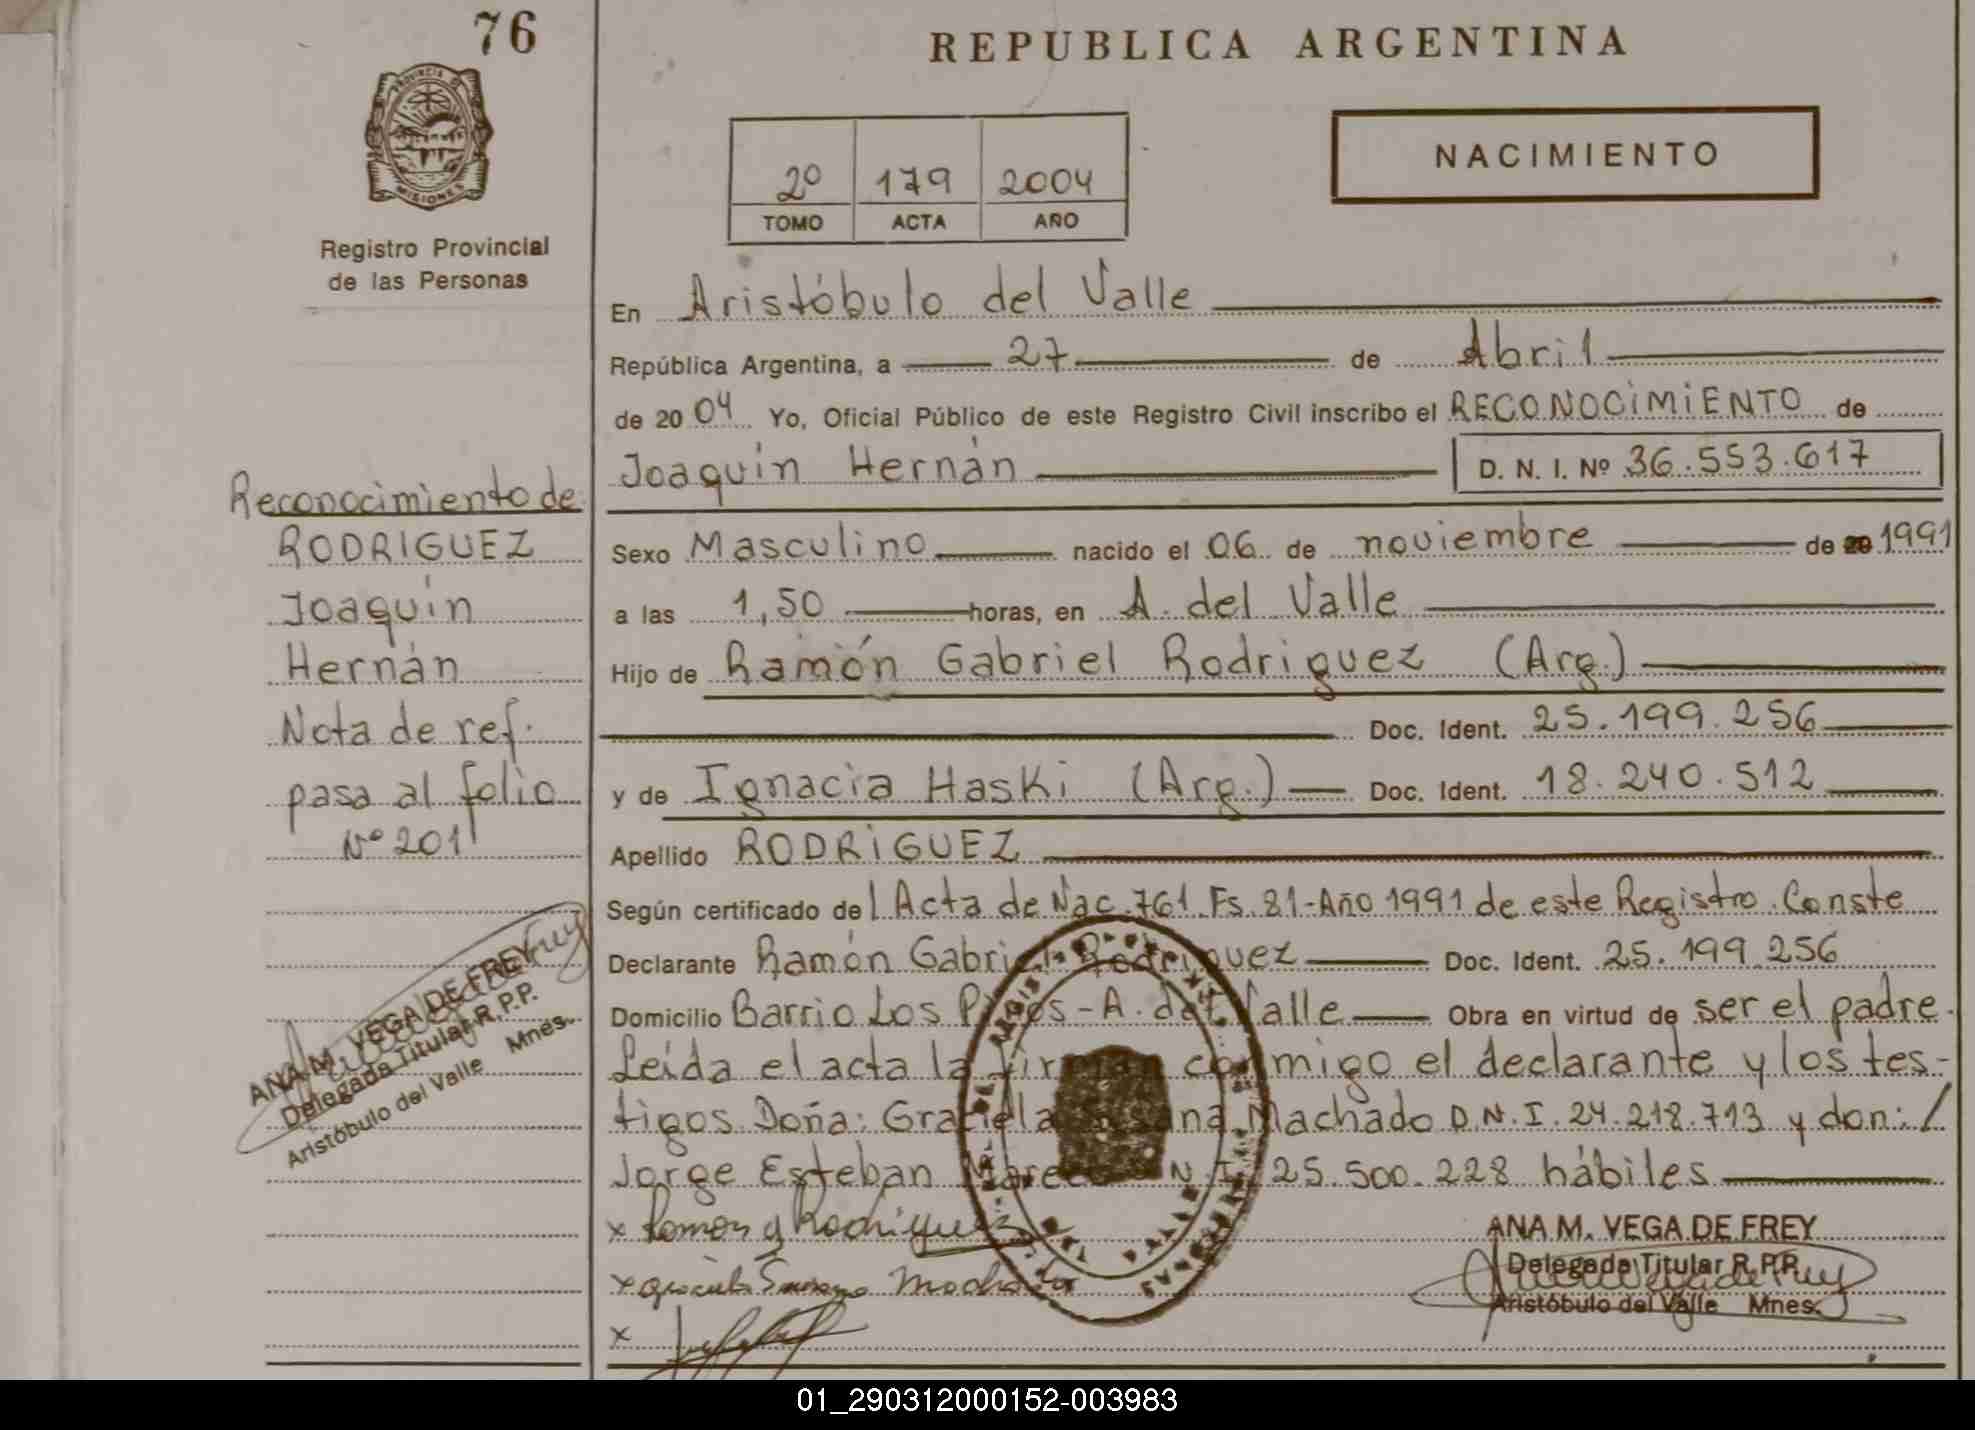 76
REPUBLICA ARGENTINA
PROVINCIA DE
MISIONES
Registro Provincial
de las Personas
2º 179 2004
TOMO ACTA AÑO
NACIMIENTO
En Aristóbulo del Valle
República Argentina, a 27 de Abril
de 2004 Yo, Oficial Público de este Registro Civil inscribo el RECONOCIMIENTO de
Joaquín Hernán D. N. I. Nº 36.553.617
Sexo Masculino nacido el 06 de noviembre de 20 1991
a las 1,50 horas, en A. del Valle
Hijo de Ramón Gabriel Rodriguez (Arg.)
Doc. Ident. 25.199.256
y de Ignacia Haski (Arg.) Doc. Ident. 18.240.512
Apellido RODRIGUEZ
Según certificado del Acta de Nac. 761. Fs. 81-Año 1991 de este Registro. Conste
Declarante Ramón Gabriel Rodriguez Doc. Ident. 25.199.256
Domicilio Barrio Los Pinos-A. del Valle Obra en virtud de ser el padre.
Leída el acta la firman conmigo el declarante y los tes-
tigos Doña: Graciela Susana Machado D.N.I. 24.218.713 y don:/
Jorge Esteban D.N.I. 25.500.228 hábiles
x Ramon g Rodriguez
x Machado
x
ANA M. VEGA DE FREY
Delegada Titular R.P.P.
Aristóbulo del Valle Mnes.
Reconocimiento de
RODRIGUEZ
Joaquín
Hernán
Nota de ref.
pasa al folio
Nº 201
ANA M. VEGA DE FREY
Delegada Titular R.P.P.
Aristóbulo del Valle Mnes.
01_290312000152-003983